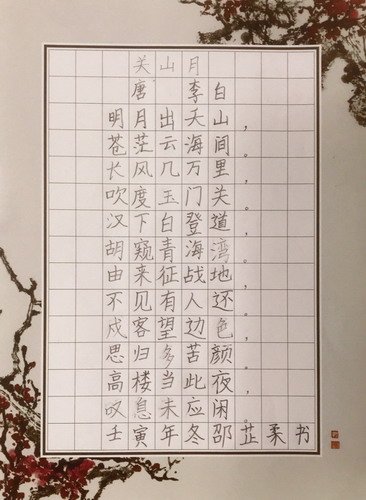 关山月
唐 李白
明月出天山，
苍茫云海间。
长风几万里，
吹度玉门关。
汉下白登道，
胡窥青海湾。
由来征战地，
不见有人还。
戍客望边色，
思归多苦颜。
高楼当此夜，
叹息未应闲。
壬寅年冬邵芷柔书